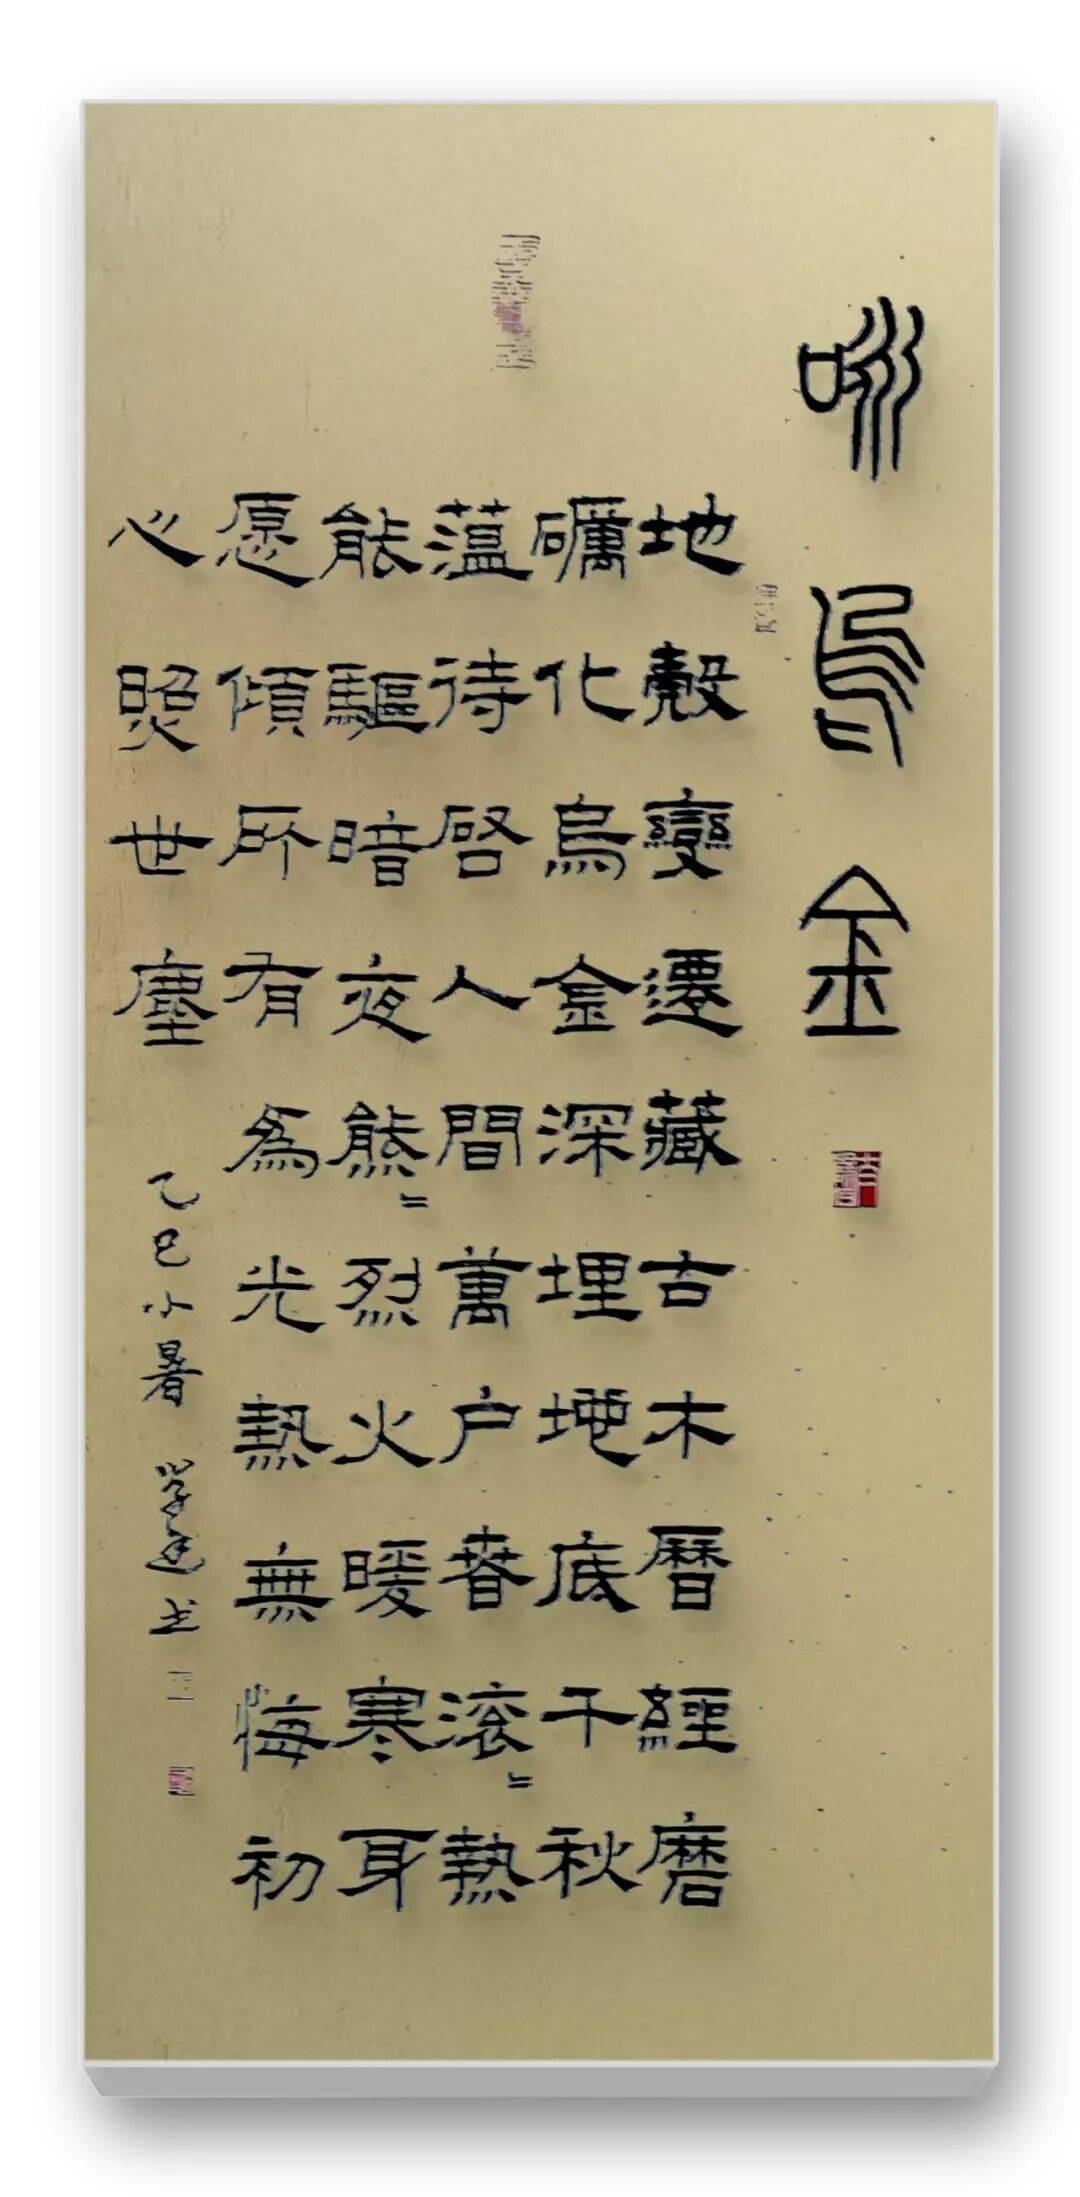 咏烏金
地殼變遷藏古木曆經磨
礪化烏金深埋地底千秋
薀待啓人間萬户春滾〻熱
能驅暗夜熊〻烈火暖寒身
愿傾所有為光熱無悔初
心照世塵
乙巳小暑 學